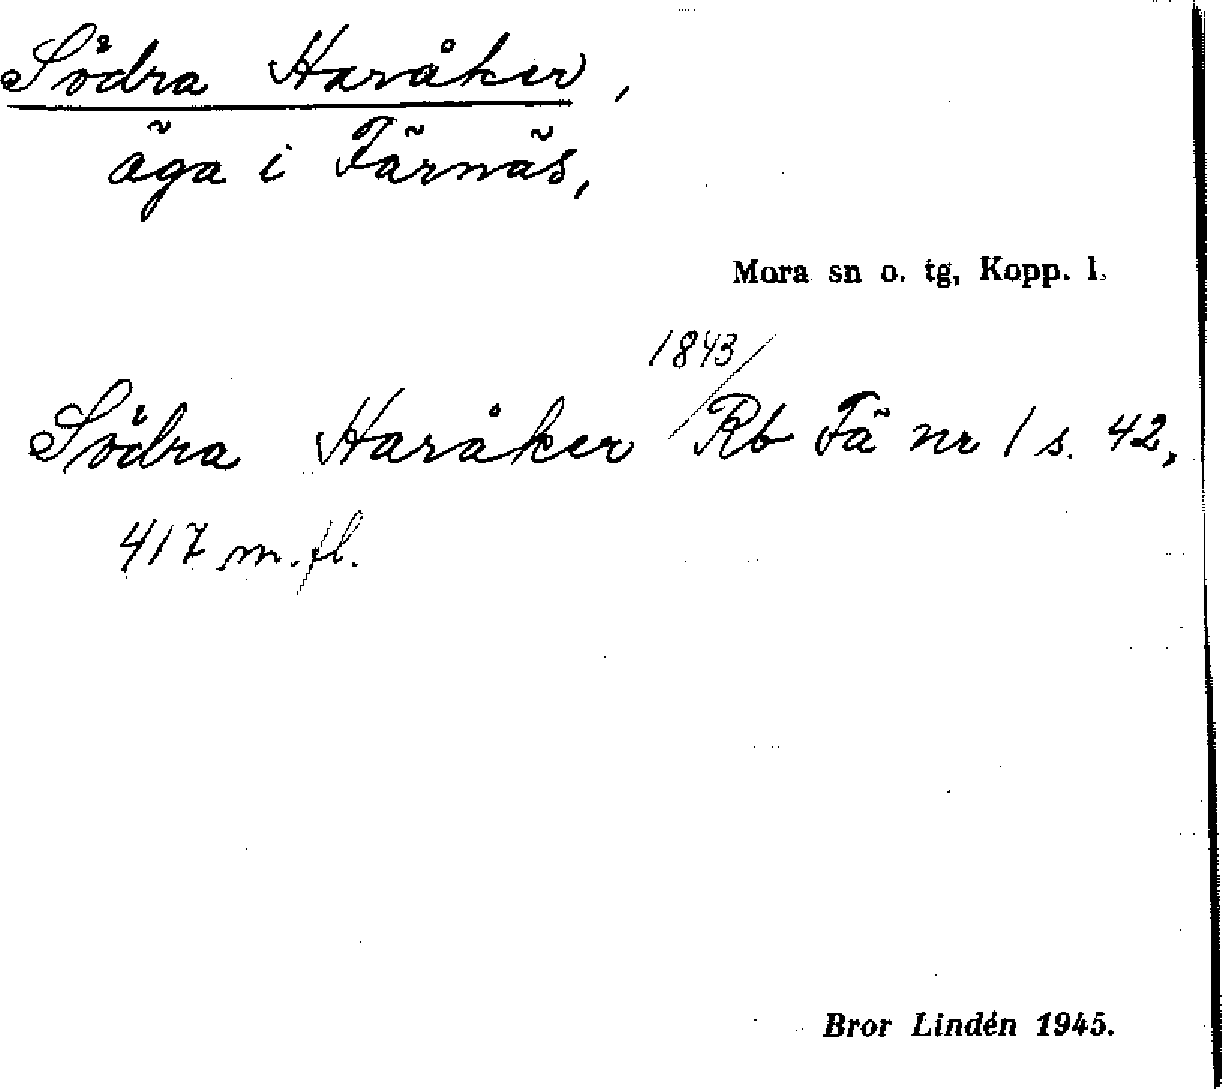 Södra Haråker,
äga i Färnäs,
Mora sn o. tg, Kopp. l.
Södra Haråker 1843/ Rb Fä nr 1 s. 42,
417 m. fl.
Bror Lindén 1945.